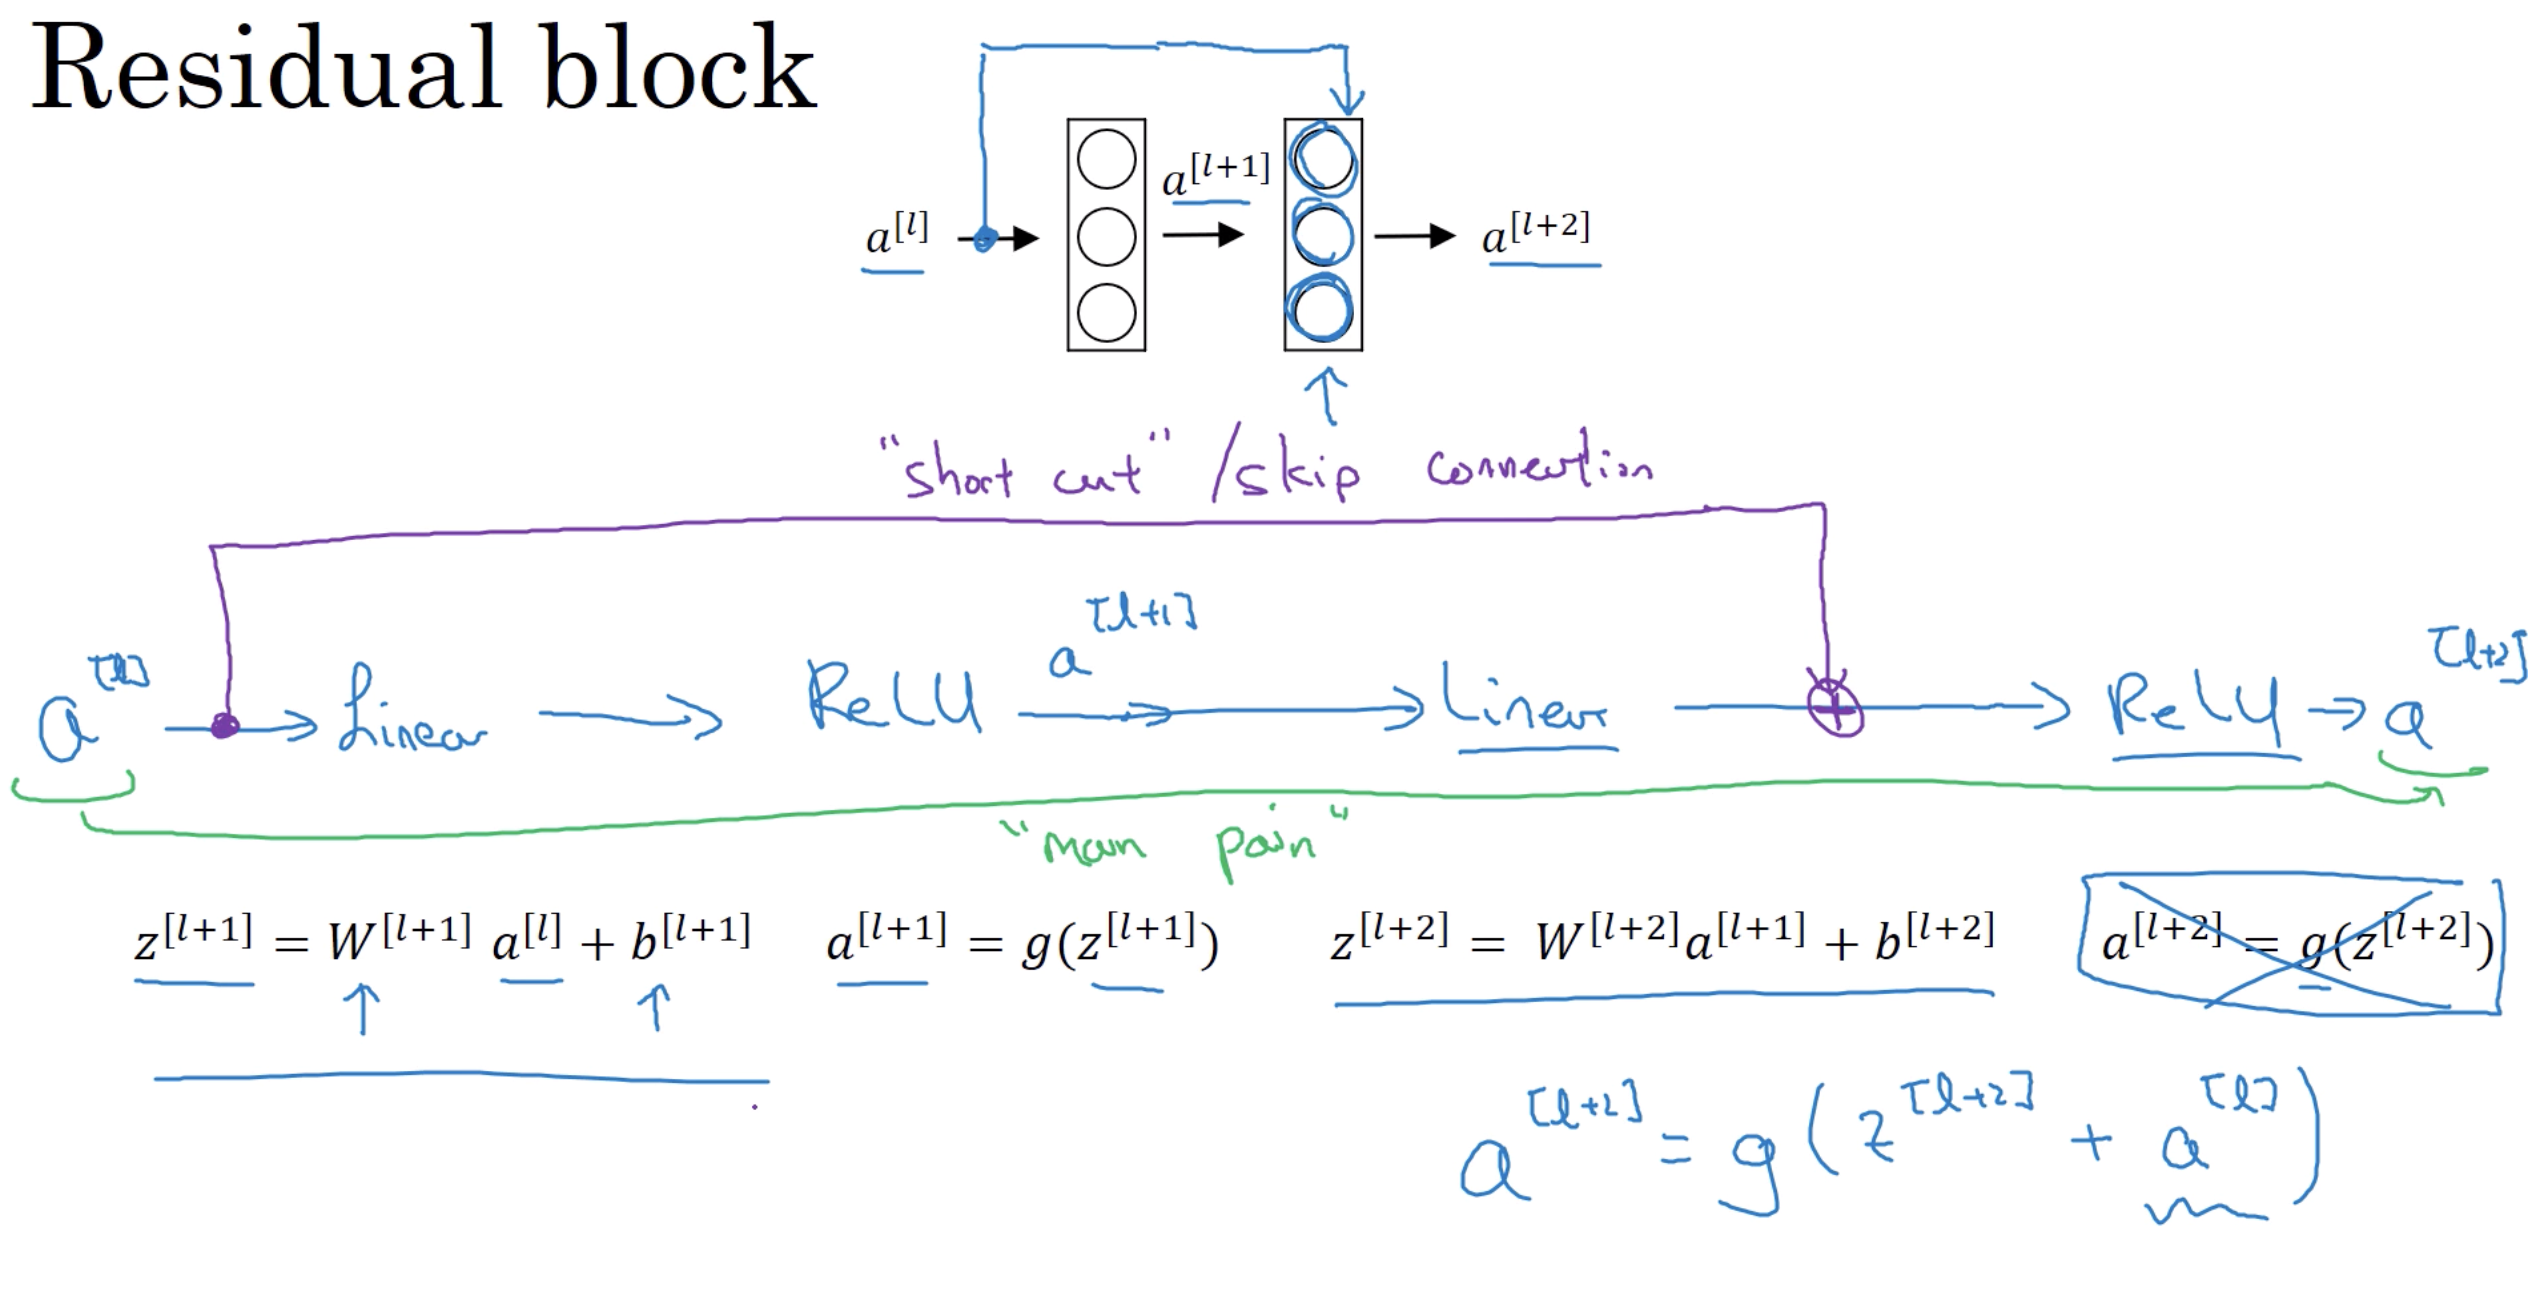 Residual block
a^[l+1]
a^[l] a^[l+2]
"short cut" / skip connection
a^[l] → Linear → ReLU a^[l+1] → Linear → ReLU → a^[l+2]
"main path"
z^[l+1] = W^[l+1] a^[l] + b^[l+1] a^[l+1] = g(z^[l+1]) z^[l+2] = W^[l+2] a^[l+1] + b^[l+2] a^[l+2] = g(z^[l+2])
a^[l+2] = g(z^[l+2] + a^[l])